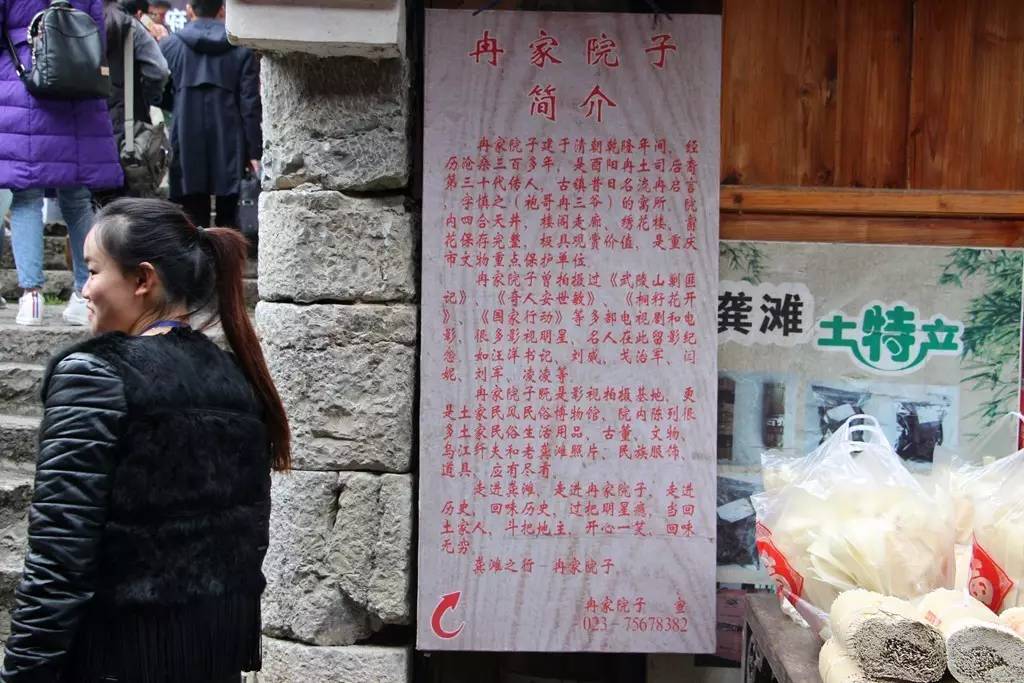 冉家院子
简介
冉家院子建于清朝乾隆年间，经
历沧桑三百多年，是酉阳冉土司后裔
第三十代传人，古镇昔日名流冉启言
，字慎之（袍哥冉三爷）的寓所，院
内四合天井，楼阁走廊、绣花楼、窗
花保存完整，极具观赏价值，是重庆
市文物重点保护单位。
冉家院子曾拍摄过《武陵山剿匪
记》、《奇人安世敏》、《桐籽花开
》、《国家行动》等多部电视剧和电
影，很多影视明星、名人在此留影纪
念，如汪洋书记、刘威、戈治军、闫
妮、刘军、凌凌等。
冉家院子既是影视拍摄基地，更
是土家民风民俗博物馆、院内陈列很
多土家民俗生活用品、古董、文物、
乌江纤夫和老龚滩照片、民族服饰、
道具，应有尽有。
走进龚滩，走进冉家院子，走进
历史，回味历史，过把明星瘾，当回
土家人，斗把地主，开心一笑，回味
无穷
龚滩之行－冉家院子。
冉家院子
023－75678382
龚滩
土特产